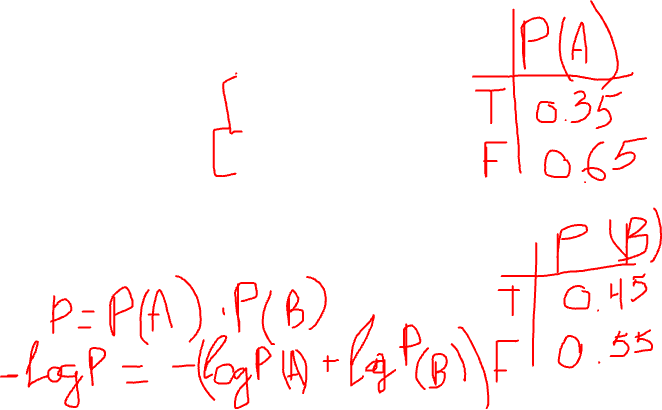 P(A)
T 0.35
F 0.65
P(B)
T 0.45
F 0.55
P = P(A) · P(B)
-log P = -(log P(A) + log P(B))